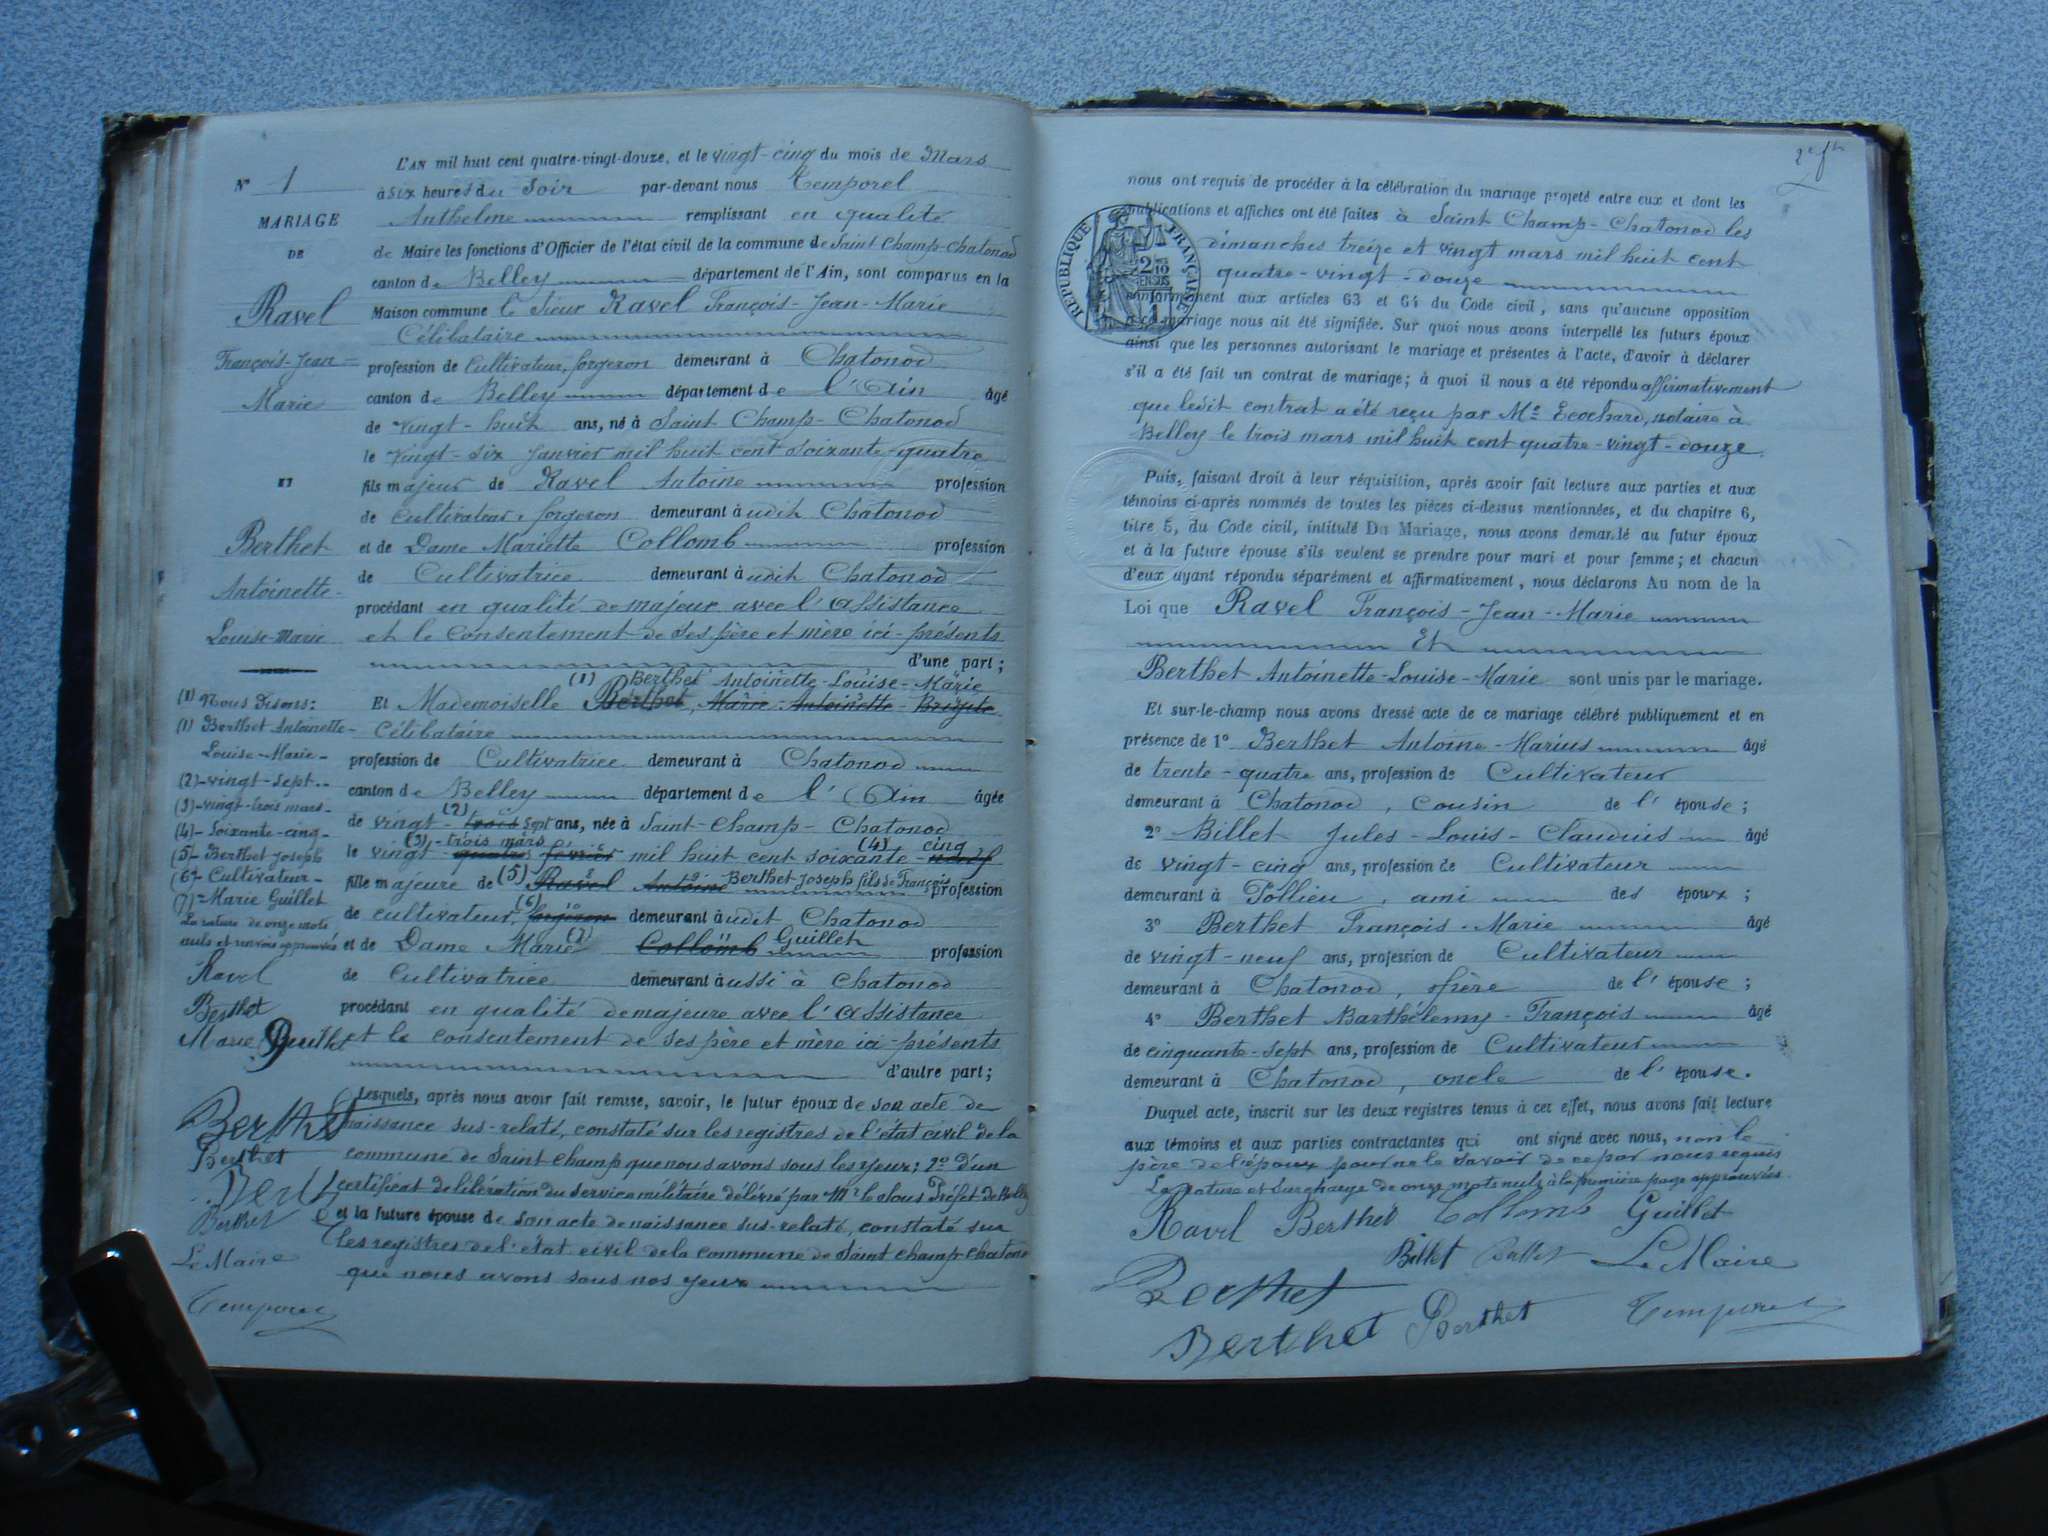 N° 1
MARIAGE
DE
Ravel
François-Jean-
Marie
ET
Berthet
Antoinette-
Louise-Marie
(1) Nous disons:
(1) Berthet Antoinette-
Louise-Marie-
(2)-vingt-sept-
(3)-vingt-trois mars-
(4)-Soixante-cinq-
(5)-Berthet Joseph
(6)-Cultivateur-
(7)-Marie Guillet
La rature de onze mots
nuls et renvois approuvés
Ravel
Berthet
Marie Guillet
Berthet
Berthet
Berthet
Le Maire
Temporel
L'AN mil huit cent quatre-vingt-douze, et le vingt-cinq du mois de Mars
à six heures du Soir par-devant nous Temporel
Anthelme remplissant en qualité
de Maire les fonctions d'Officier de l'état civil de la commune de Saint Champ-Chatonod
canton de Belley département de l'Ain, sont comparus en la
Maison commune le Sieur Ravel François-Jean-Marie
Célibataire
profession de Cultivateur, forgeron demeurant à Chatonod
canton de Belley département de l'Ain âgé
de vingt-huit ans, né à Saint Champ-Chatonod
le vingt-six Janvier mil huit cent soixante-quatre
fils majeur de Ravel Antoine profession
de Cultivateur, forgeron demeurant àudit Chatonod
et de Dame Mariette Collomb profession
de Cultivatrice demeurant àudit Chatonod
procédant en qualité de majeur avec l'Assistance
et le Consentement de ses père et mère ici-présents
d'une part;
(1) Berthet Antoinette-Louise-Marie
Et Mademoiselle Berthet, Marie-Antoinette-Brigite
Célibataire
profession de Cultivatrice demeurant à Chatonod
canton de Belley département de l'Ain âgée
de vingt-(2) trois sept ans, née à Saint-Champ-Chatonod
(3)-trois mars (4) cinq
le vingt-quatre février mil huit cent soixante-neuf
fille majeure de (5) Ravel Antoine Berthet Joseph fils de François profession
de cultivateur, (6) forgeron demeurant àudit Chatonod
et de Dame Marie (7) Collomb Guillet profession
de Cultivatrice demeurant àussi à Chatonod
procédant en qualité de majeure avec l'Assistance
et le consentement de ses père et mère ici-présents
d'autre part;
Lesquels, après nous avoir fait remise, savoir, le futur époux de son acte de
naissance sus-relaté, constaté sur les registres de l'état civil de la
commune de Saint Champ que nous avons sous les yeux; 2° d'un
certificat de libération du service militaire délivré par Mr le Sous Préfet de Belley
et la future épouse de son acte de naissance sus-relaté, constaté sur
les registres de l'état civil de la commune de Saint Champ-Chatonod
que nous avons sous nos yeux
nous ont requis de procéder à la célébration du mariage projeté entre eux et dont les
publications et affiches ont été faites à Saint Champ-Chatonod les
dimanches treize et vingt mars mil huit cent
quatre-vingt-douze
RÉPUBLIQUE FRANÇAISE
2/10 EN SUS
conformément aux articles 63 et 64 du Code civil, sans qu'aucune opposition
à ce mariage nous ait été signifiée. Sur quoi nous avons interpellé les futurs époux
ainsi que les personnes autorisant le mariage et présentes à l'acte, d'avoir à déclarer
s'il a été fait un contrat de mariage; à quoi il nous a été répondu affirmativement
que ledit contrat a été reçu par Me Ecochard, notaire à
Belley le trois mars mil huit cent quatre-vingt-douze.
Puis, faisant droit à leur réquisition, après avoir fait lecture aux parties et aux
témoins ci-après nommés de toutes les pièces ci-dessus mentionnées, et du chapitre 6,
titre 5, du Code civil, intitulé Du Mariage, nous avons demandé au futur époux
et à la future épouse s'ils veulent se prendre pour mari et pour femme; et chacun
d'eux ayant répondu séparément et affirmativement, nous déclarons Au nom de la
Loi que Ravel François-Jean-Marie
Et
Berthet Antoinette-Louise-Marie sont unis par le mariage.
Et sur-le-champ nous avons dressé acte de ce mariage célébré publiquement et en
présence de 1° Berthet Antoine-Marius âgé
de trente-quatre ans, profession de Cultivateur
demeurant à Chatonod, cousin de l'épouse;
2° Billet Jules-Louis-Claudius âgé
de vingt-cinq ans, profession de Cultivateur
demeurant à Pollieu, ami des époux;
3° Berthet François-Marie âgé
de vingt-neuf ans, profession de Cultivateur
demeurant à Chatonod, frère de l'épouse;
4° Berthet Barthélemy-François âgé
de cinquante-sept ans, profession de Cultivateur
demeurant à Chatonod, oncle de l'épouse.
Duquel acte, inscrit sur les deux registres tenus à cet effet, nous avons fait lecture
aux témoins et aux parties contractantes qui ont signé avec nous, non le
père de l'époux pour ne le savoir de ce par nous requis
La rature et surcharge de onze mots nuls à la première page approuvés.
Ravel Berthet Collomb Guillet
Billet Le Maire
Berthet
Berthet Berthet Temporel